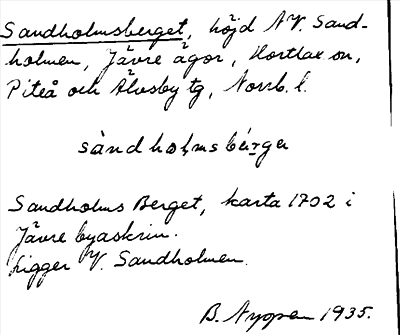 Sandholmsberget, höjd N V. Sand-
holmen, Jävre ägor, Hortlax sn,
Piteå och Älvsby tg, Norrb. l.
sàndhoḷmsbǽrgə
Sandholms Berget, karta 1702 i
Jävre byaskrin.
Ligger V. Sandholmen.
B. Nyppen 1935.